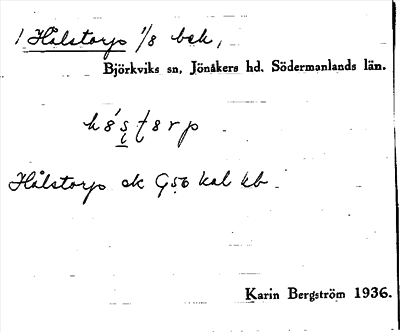 1 Hålstorp 1/8 bek,
Björkviks sn, Jönåkers hd. Södermanlands län.
Hålstorp ek G56 kal kb
Karin Bergström 1936.